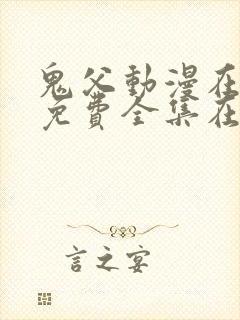 鬼父動漫在
免費全集在
言之宴